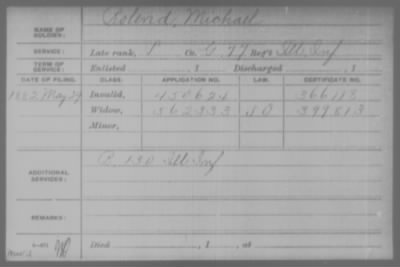 NAME OF SOLDIER: Rolend, Michael
SERVICE: Late rank, P Co. G, 77 Reg't Ill. Inf
TERM OF SERVICE: Enlisted , 1 Discharged , 1
DATE OF FILING. CLASS. APPLICATION NO. LAW. CERTIFICATE NO.
1882 May 29 Invalid, 450624 366118
Widow, 562333 399813
Minor,
ADDITIONAL SERVICES: 130 Ill Inf
REMARKS:
Died , 1 , at